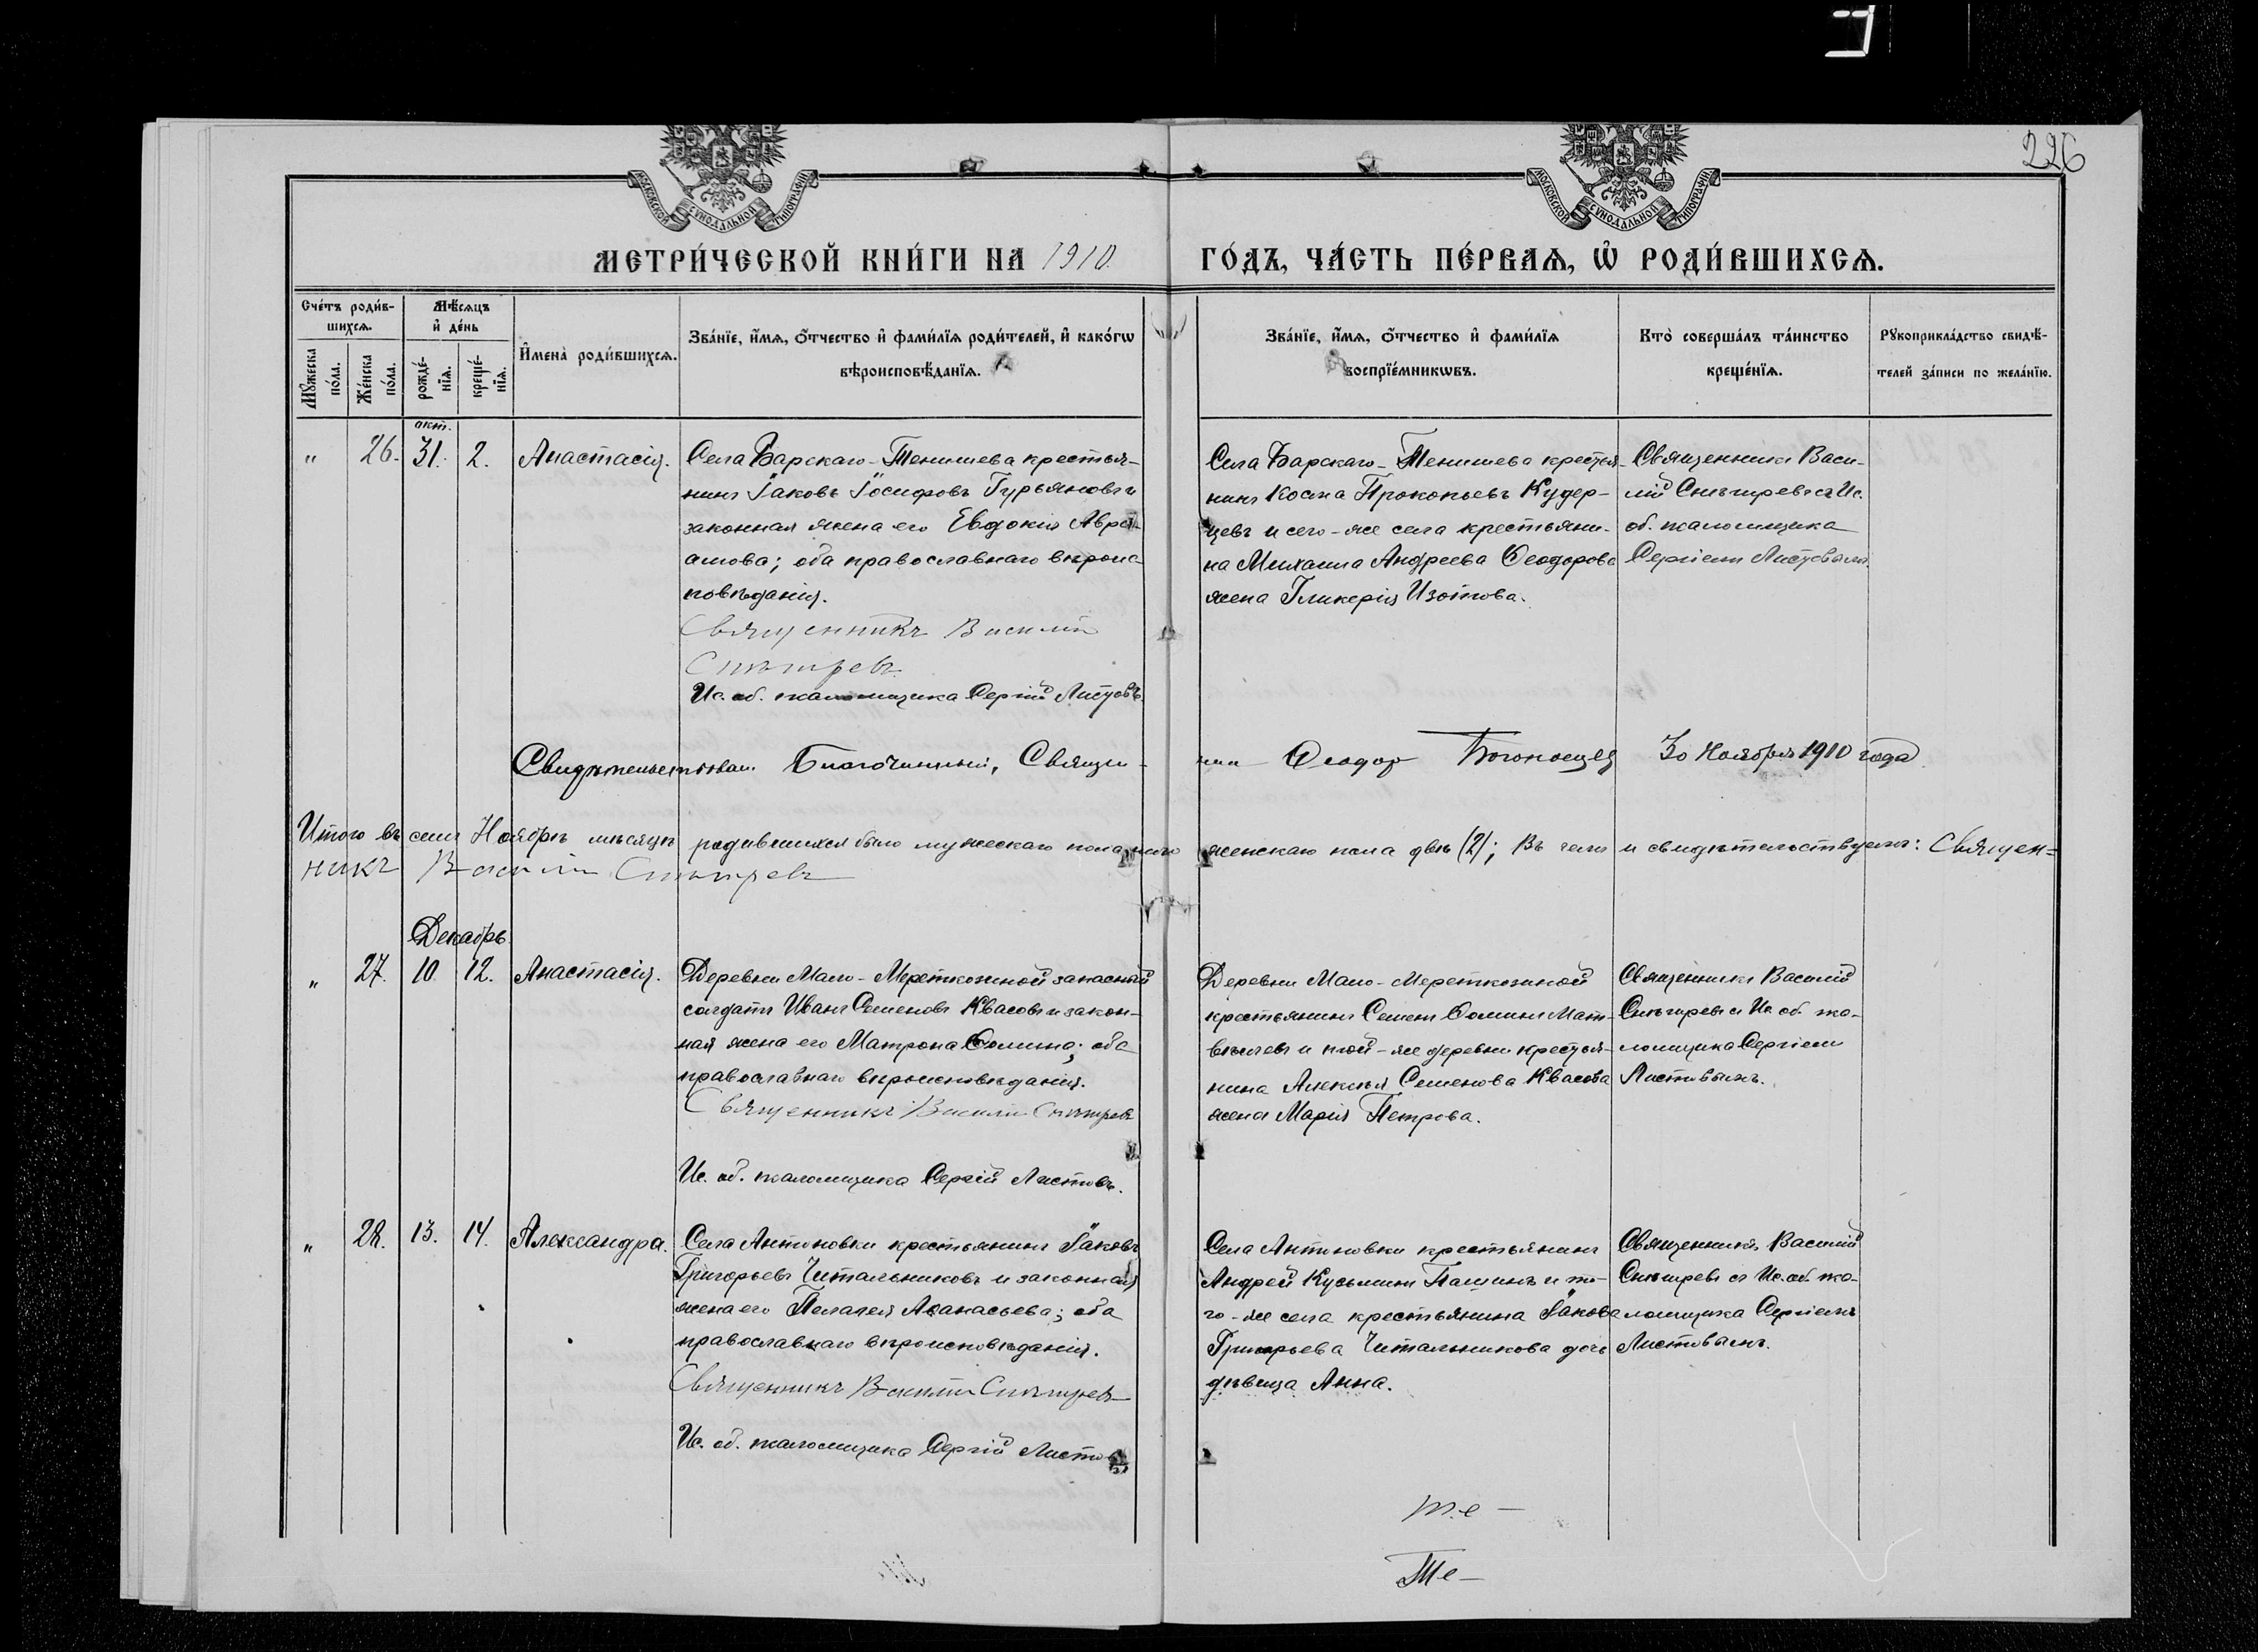 226
МОСКОВСКОЙ СУНОДАЛЬНОЙ ТИПОГРАФІИ
МОСКОВСКОЙ СУНОДАЛЬНОЙ ТИПОГРАФІИ
МЕТРИ́ЧЕСКОЙ КНИ́ГИ НА 1910. ГО́ДЪ, ЧА́СТЬ ПЕ́РВАѦ, Ѡ҆ РОДИ́ВШИХСѦ.
Сче́тъ роди́в-
шихсѧ.
Мѣ́сѧцъ
и҆ де́нь
Мꙋ́жеска по́ла.
Же́нска по́ла.
рожде́-
нїѧ.
креще́-
нїѧ.
И҆мена̀ роди́вшихсѧ.
Зва́нїе, и҆́мѧ, ѻ҆́тчество и҆ фами́лїѧ роди́телей, и҆ како́гѡ
вѣроисповѣ́данїѧ.
Зва́нїе, и҆́мѧ, ѻ҆́тчество и҆ фами́лїѧ
воспрїе́мникѡвъ.
Кто̀ соверша́лъ та́инство
креще́нїѧ.
Рꙋкоприкла́дство свидѣ́-
телей за́писи по жела́нїю.
окт.
" 26. 31. 2. Анастасія.
Села Барскаго-Тенишева крестья-
нинъ Іаковъ Іосифовъ Гурьяновъ и
законная жена его Евдокія Авра-
амова; оба православнаго вѣроис
повѣданія.
Священникъ Василій
Снѣгиревъ.
Ис. об. псаломщика Сергій Листовъ.
Села Барскаго-Тенишева крестья-
нинъ Косма Прокопьевъ Кудер-
цевъ и сего-же села крестьяни-
на Михаила Андреева Ѳеодорова
жена Гликерія Изотова.
Священникъ Васи-
лій Снѣгиревъ съ Ис.
об. псаломщика
Сергіемъ Листовымъ.
Свидѣтельствовал Благочинный, Священ- ник Ѳеодор Богоносцев 30 Ноября 1910 года
Итого въ семъ Ноябрѣ мѣсяцѣ родившихся было мужескаго пола женскаго пола двѣ (2); Въ чемъ и свидѣтельствуемъ: Священ=
никъ Василій Снѣгиревъ
Декабрь
" 27. 10 12. Анастасія.
Деревни Мало-Мереткозиной запасный
солдатъ Иванъ Семеновъ Квасовъ и закон-
ная жена его Матрона Ѳомина; оба
православнаго вѣроисповѣданія.
Священникъ Василій Снѣгиревъ
Ис. об. псаломщика Сергій Листовъ.
Деревни Мало-Мереткозиной
крестьянинъ Семенъ Ѳоминъ Мат-
вѣичевъ и той-же деревни крестья-
нина Алексѣя Семенова Квасова
жена Марія Петрова.
Священникъ Василій
Снѣгиревъ съ Ис. об. пса-
ломщика Сергіемъ
Листовымъ.
" 28. 13. 14. Александра.
Села Антоновки крестьянинъ Іаковъ
Григорьевъ Читальниковъ и законная
жена его Пелагея Аѳанасьева; оба
православнаго вѣроисповѣданія.
Священникъ Василій Снѣгиревъ
Ис. об. псаломщика Сергій Листовъ
Села Антоновки крестьянинъ
Андрей Кузьминъ Пашинъ и то-
го-же села крестьянина Іакова
Григорьева Читальникова дочь
дѣвица Анна.
Священникъ Василій
Снѣгиревъ съ Ис. об. пса-
ломщика Сергіемъ
Листовымъ.
те-
Те-